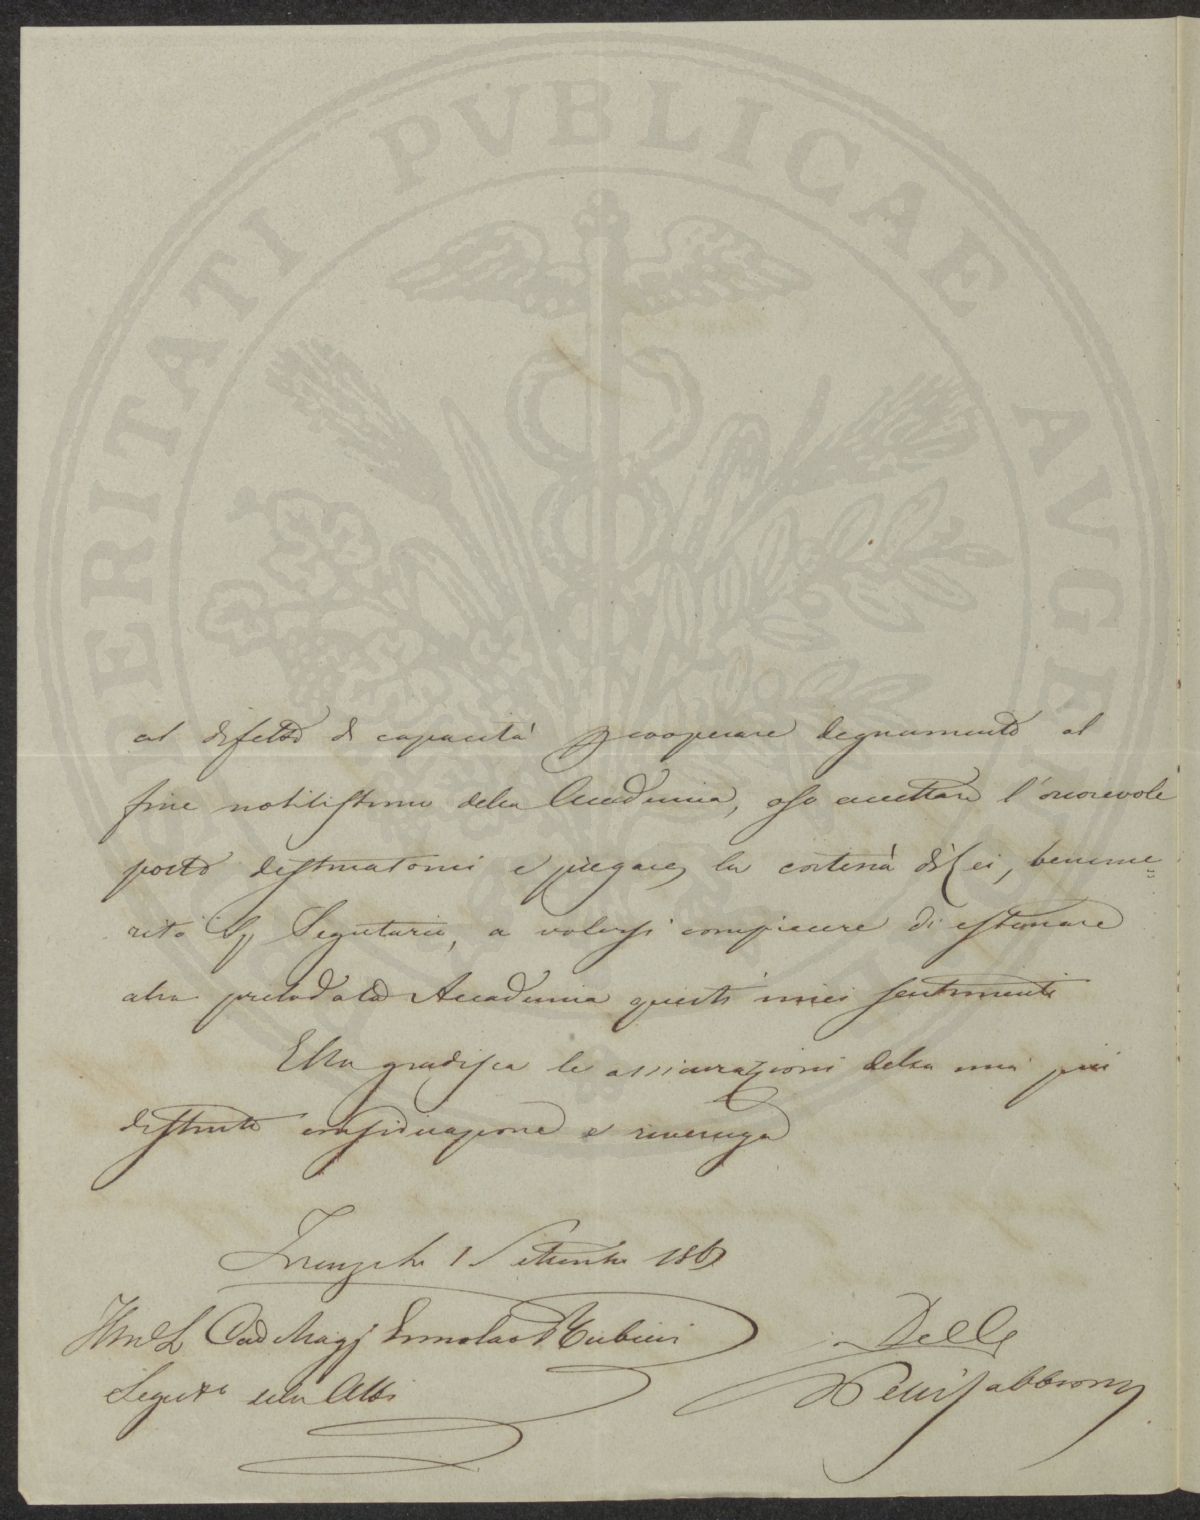 PROSPERITATI PVBLICAE AVGENDAE
al difetto di capacità p cooperare degnamente al
fine nobilissimo della Accademia, oso accettare l'onorevole
posto destinatomi e pregare la cortesia di Lei, beneme=
rito Segretario, a volersi compiacere di esternare
alla prelodata Accademia questi miei sentimenti
Ella gradisca le assicurazioni della mia più
distinta considerazione e riverenza
Firenze li 1 Settembre 186
Ermolao Rubieri
Segret° della
Pelli Fabbroni